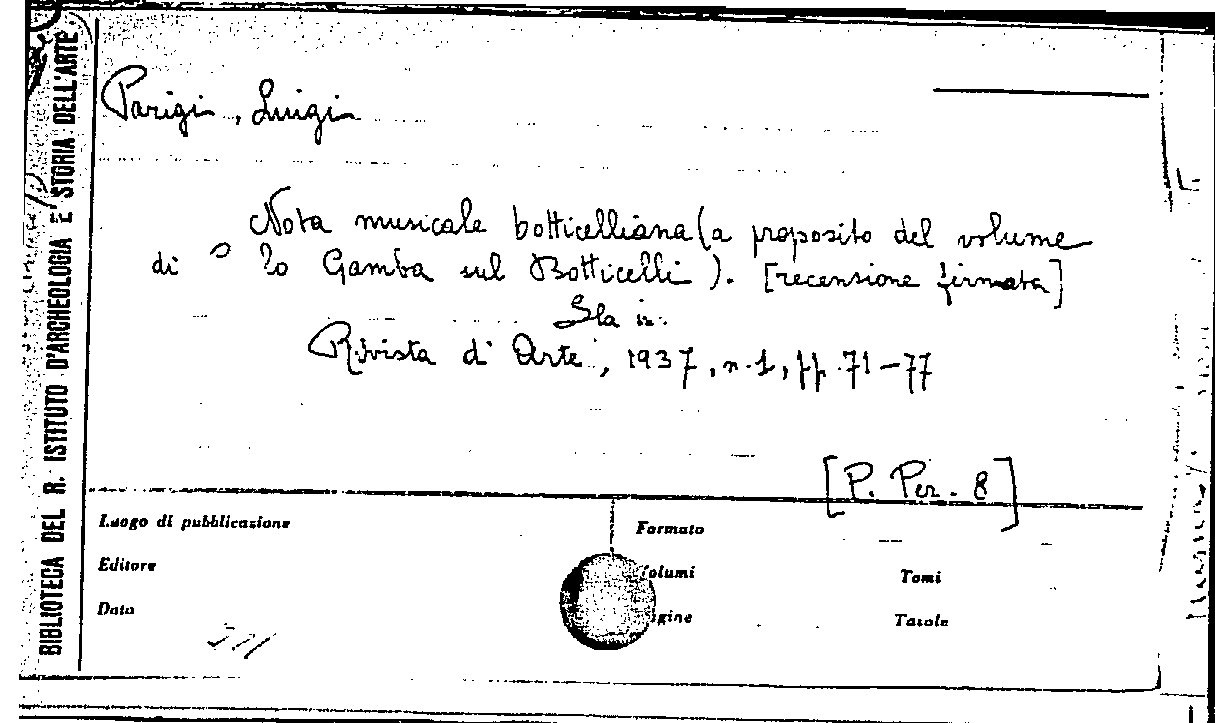 BIBLIOTECA DEL R. ISTITUTO D'ARCHEOLOGIA E STORIA DELL'ARTE
Parigi, Luigi
Nota musicale botticelliana (a proposito del volume
di Gamba sul Botticelli). [recensione firmata]
Sta in:
Rivista d'Arte, 1937, n. 1, pp. 71-77
[P. Per. 8]
Luogo di pubblicazione
Formato
Editore
olumi
Tomi
Data
gine
Tavole